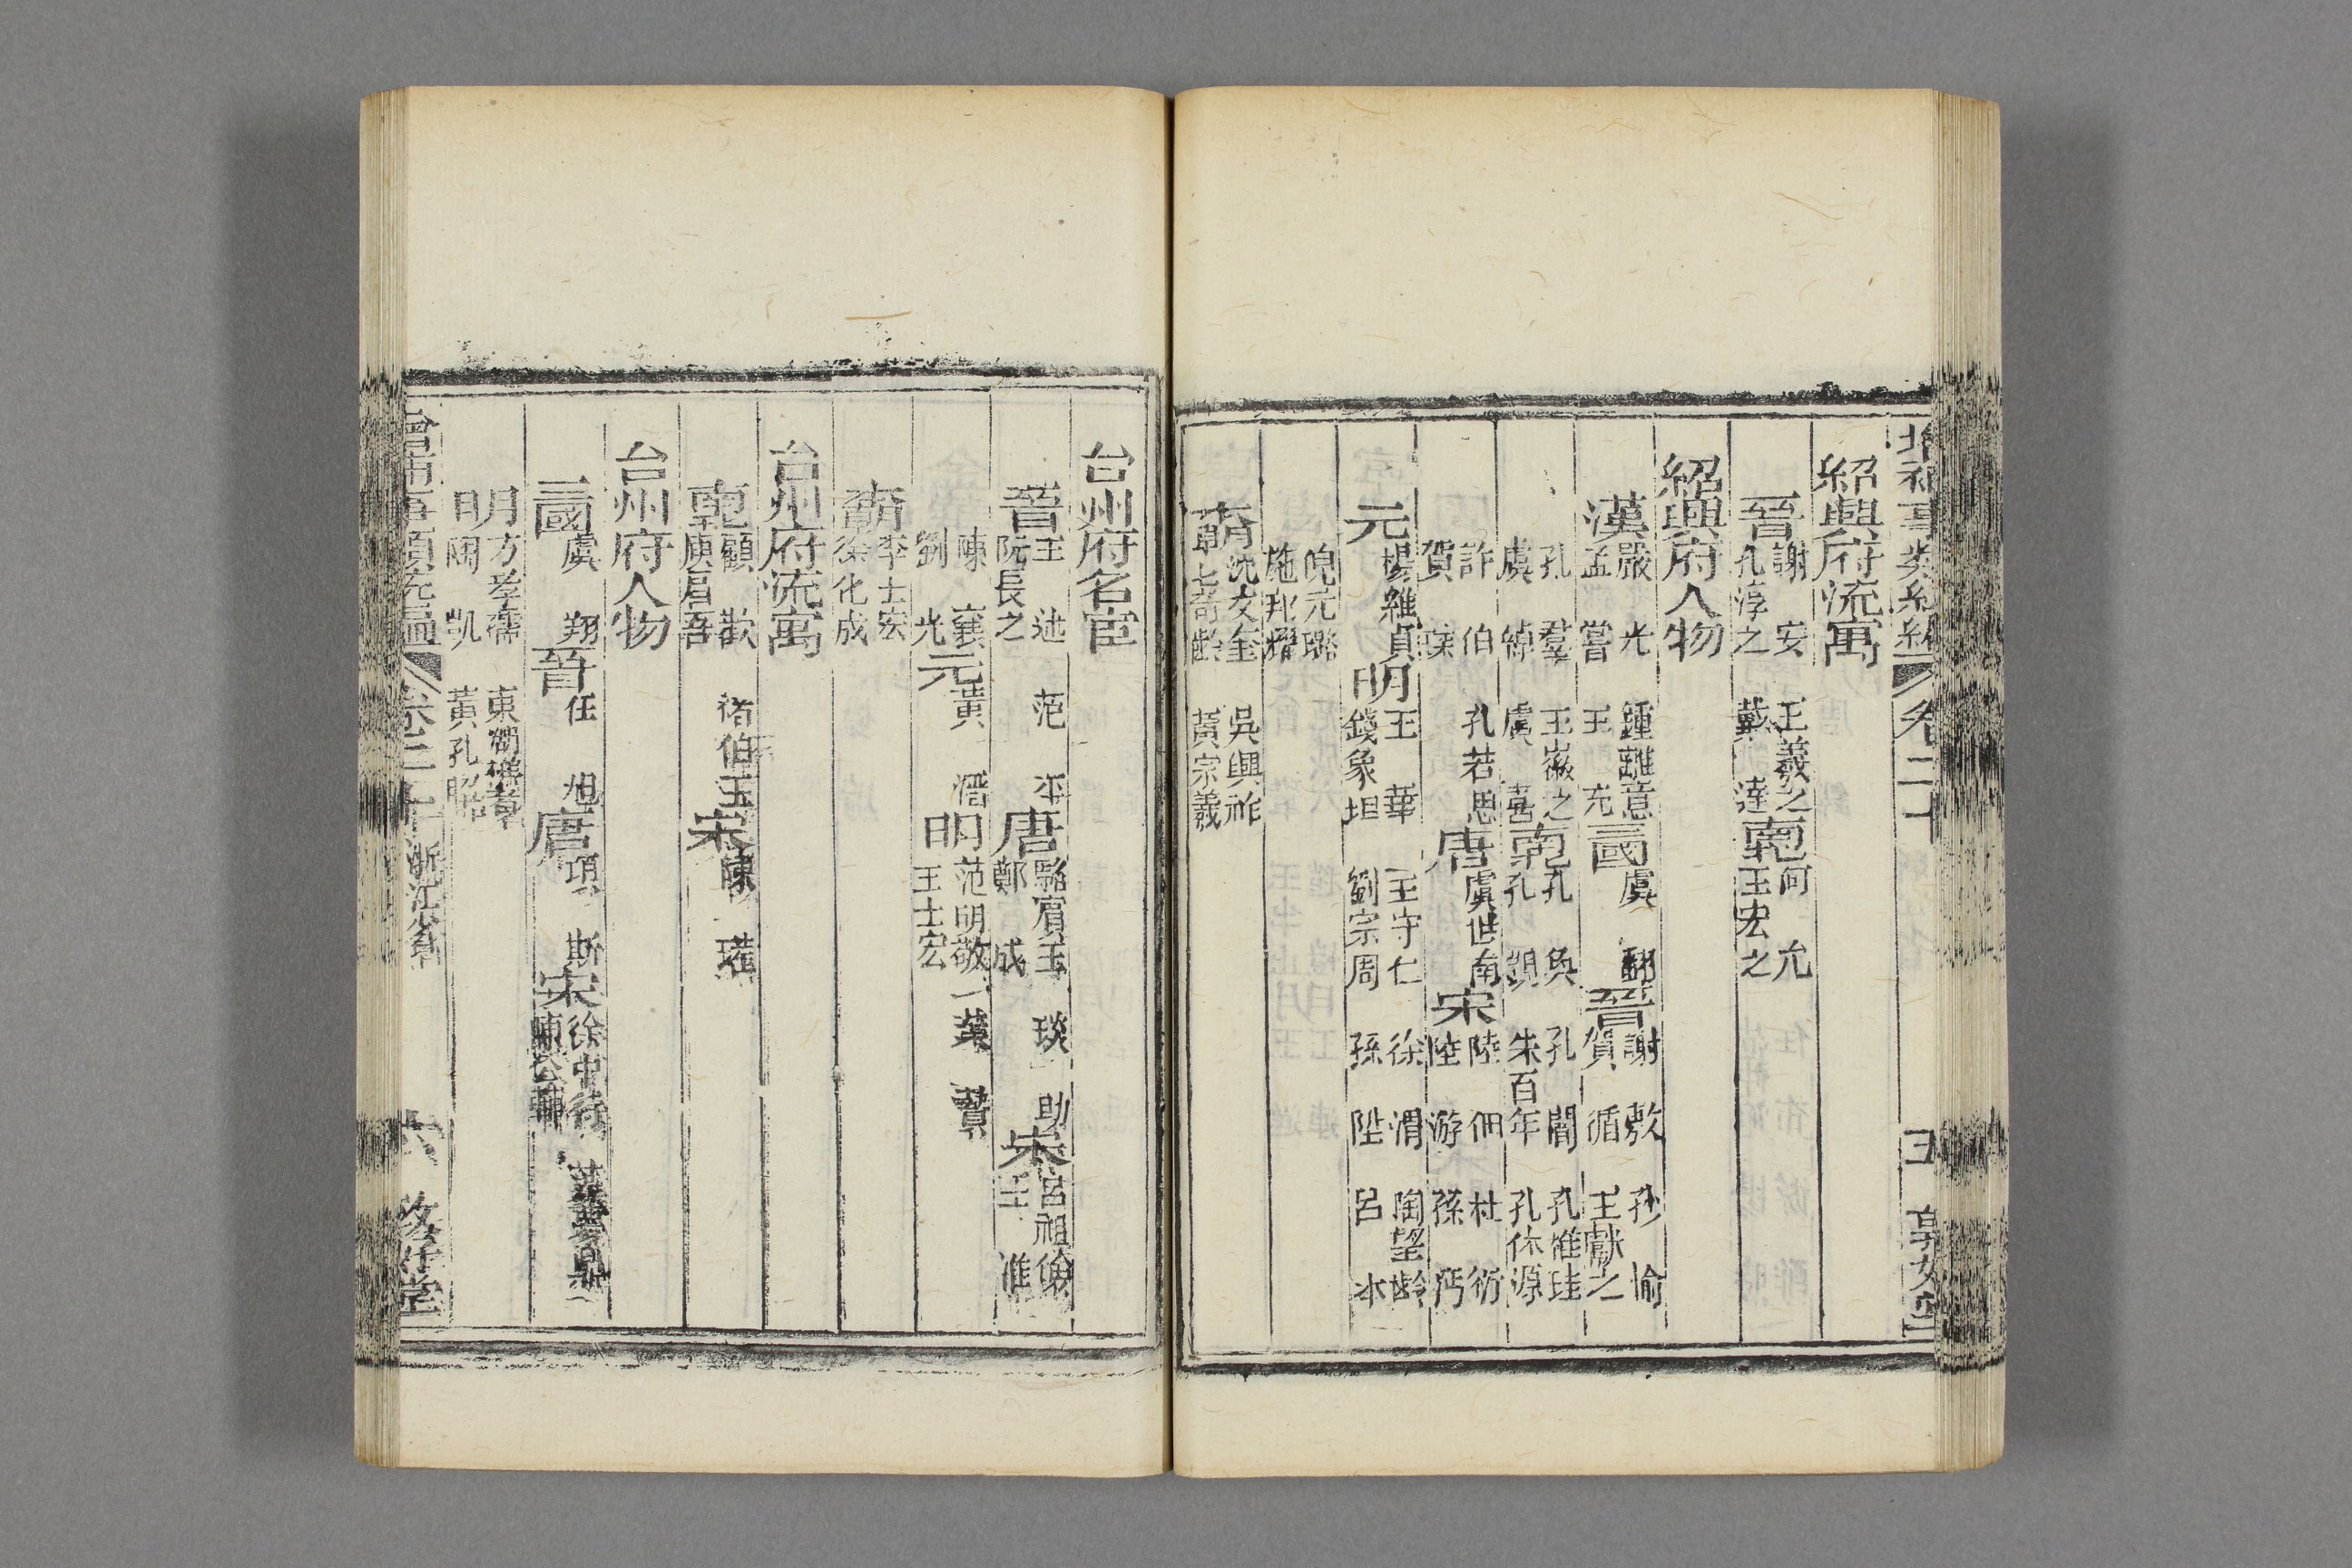 紹興府流寓
晉 謝 安 王羲之 何 允
孔淳之 戴 逵 王宏之
紹興府人物
漢 嚴 光 鍾離意 三國 虞 翻 晉 謝 敷 孔 愉
孟 嘗 王 充 賀 循 王獻之
孔 羣 王徽之 孔 奐 孔 閭 孔惟珪
虞 綽 虞 荔 孔 顗 朱百年 孔休源
許 伯 孔若思 唐 虞世南 宋 陸 佃 杜 衍
賀 陸 游 孫 沔
元 楊維貞 明 王 華 王守仁 徐 渭 陶望齡
錢象坦 劉宗周 孫 陞 呂 本
倪元璐
施邦耀
沈文奎 吳興祚
章七奇齡 黃宗羲
卷二十
五
台州府名宦
晉 王 述 范 平 唐 駱賓王 琰 助 宋 呂祖儉
阮長之 鄭 成 王 准
陳 襄 元 黃 溍 明 范明敬 葉 贄
劉 光 王士宏
李士宏
徐化成
台州府流寓
顧 歡 褚伯玉 宋 陳 瓘
庾肩吾
台州府人物
三國 虞 翔 晉 任 旭 唐 項 斯 宋 徐中行 葉夢鼎
陳公輔
明 方孝孺 東湖樵者
陶 凱 黃孔昭
卷二十 浙江省
六